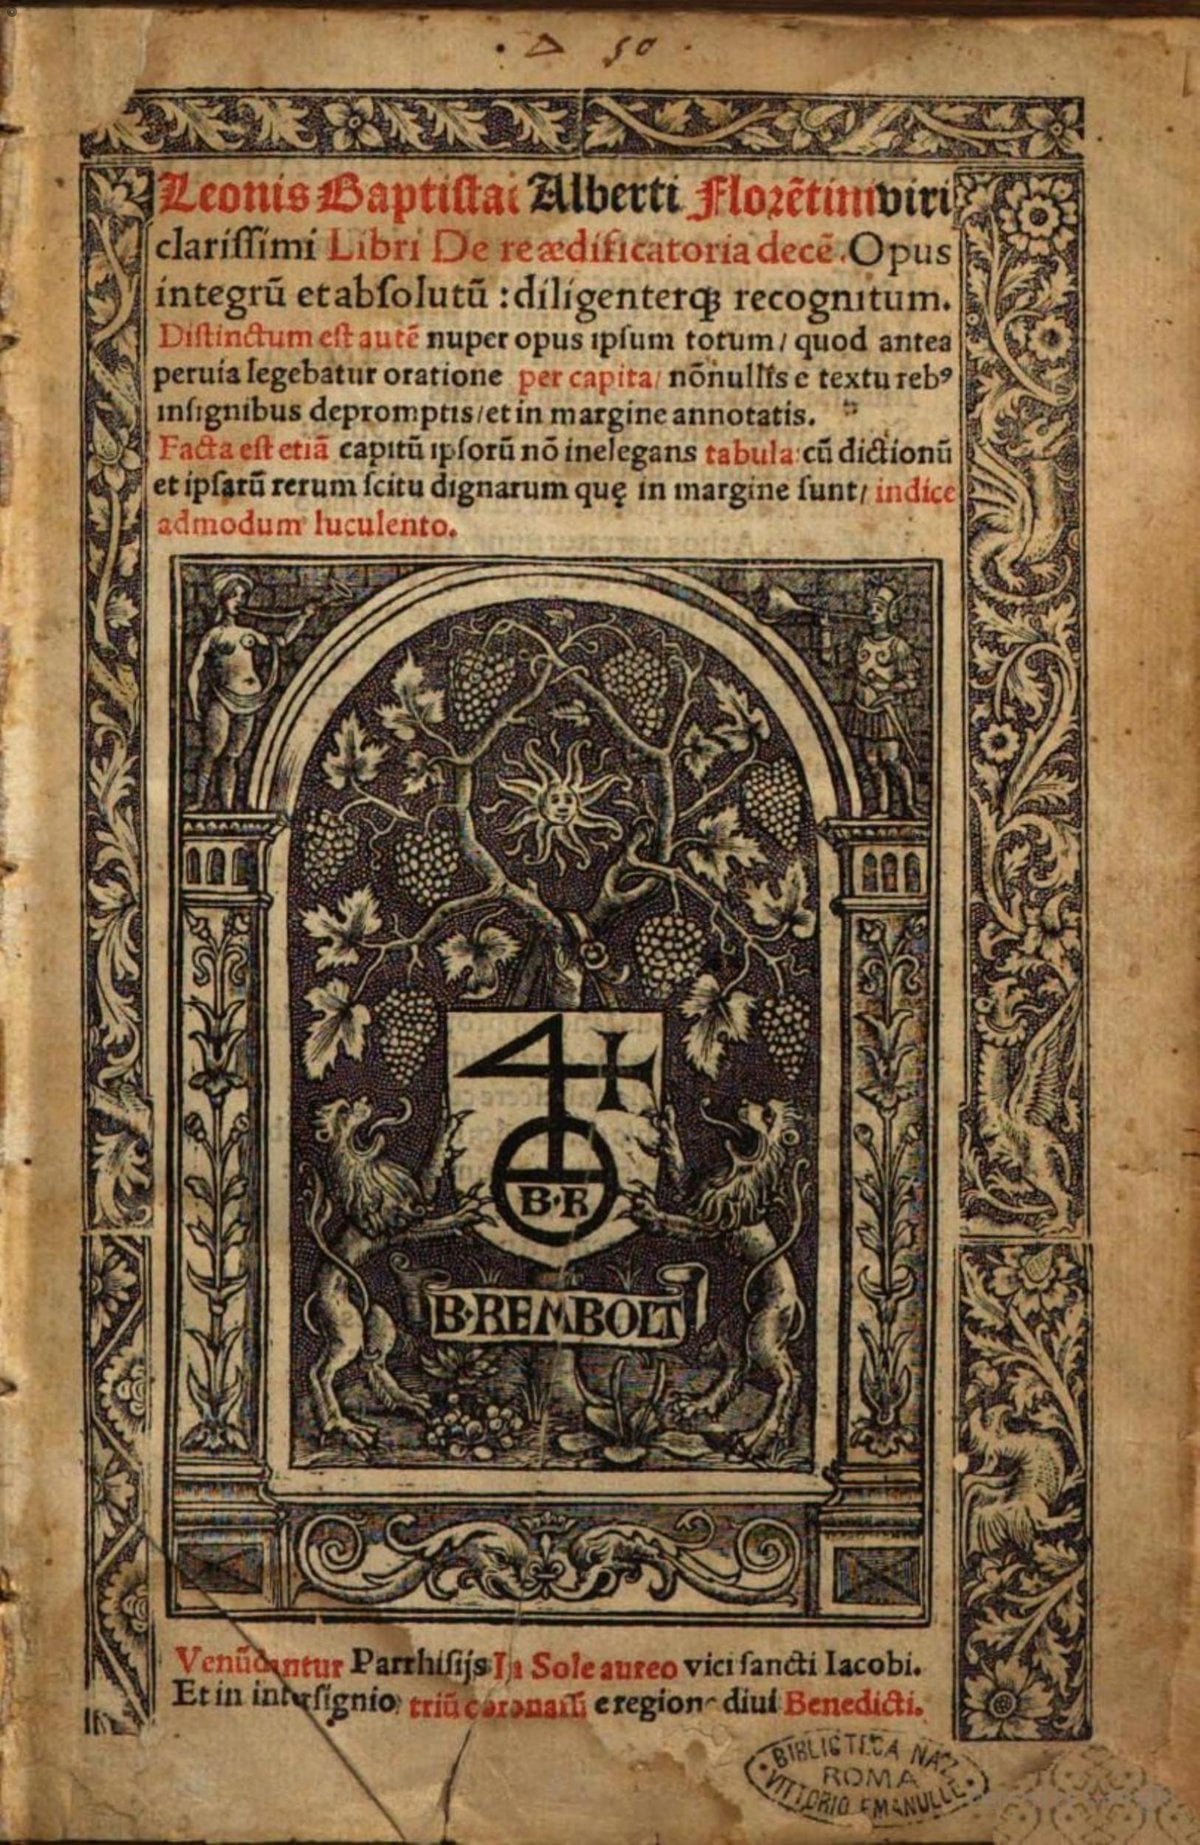 Δ 50
Leonis Baptistai Alberti Florẽtini viri
clarissimi Libri De re ædificatoria decẽ. Opus
integrũ et absolutũ : diligenterq́ꝫ recognitum.
Distinctum est autẽ nuper opus ipsum totum / quod antea
peruia legebatur oratione per capita / nõnullis e textu rebꝰ
insignibus depromptis / et in margine annotatis.
Facta est etiã capitũ ipsorũ nõ inelegans tabula : cũ dictionũ
et ipsarũ rerum scitu dignarum quę in margine sunt / indice
admodum luculento.
B·R
B·REMBOLT
Venũdantur Parrhisijs In Sole aureo vici sancti Iacobi.
Et in intersignio triũ coronarũ e regione diui Benedicti.
BIBLIOTECA NAZ.
ROMA
VITTORIO EMANUELE